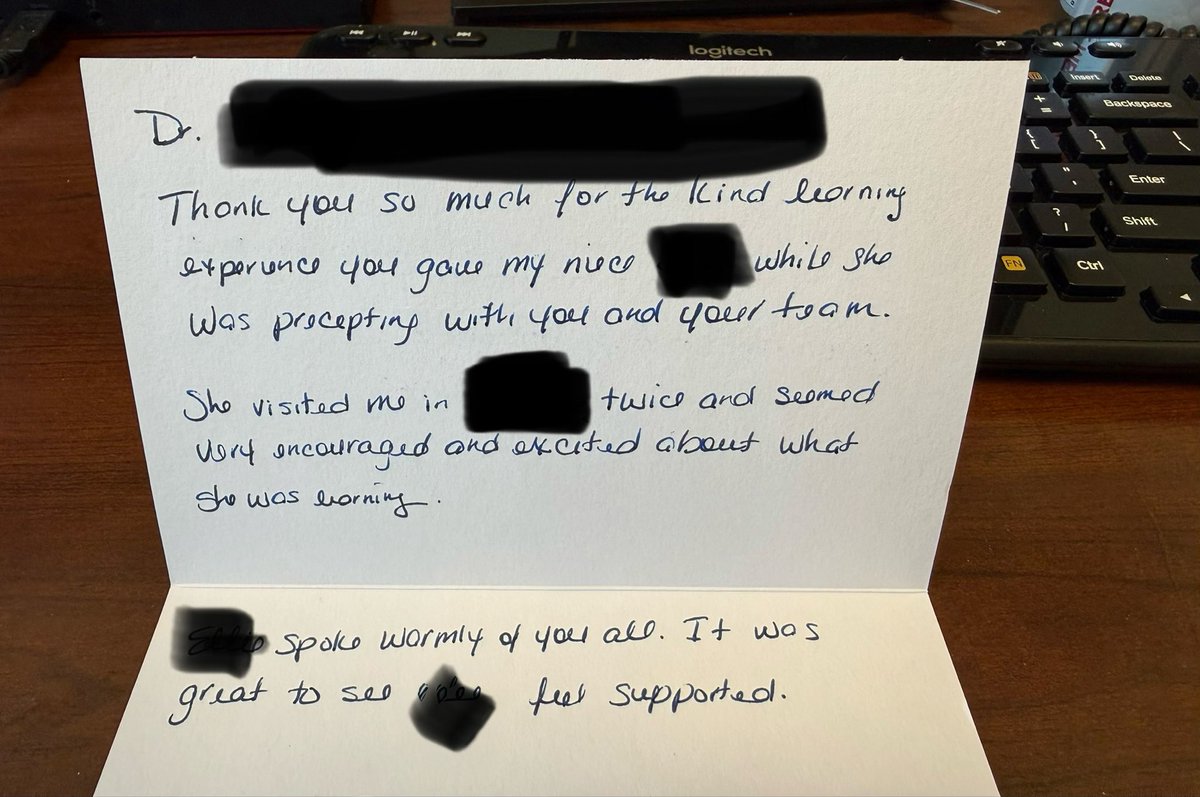 logitech
Insert Delete
+ =
Backspace
{ [ } ] | \
" ' Enter
? / Shift
FN Ctrl
Dr.
Thank you so much for the kind learning
experience you gave my niece while she
was precepting with you and your team.
She visited me in twice and seemed
very encouraged and excited about what
she was learning.
spoke warmly of you all. It was
great to see feel supported.